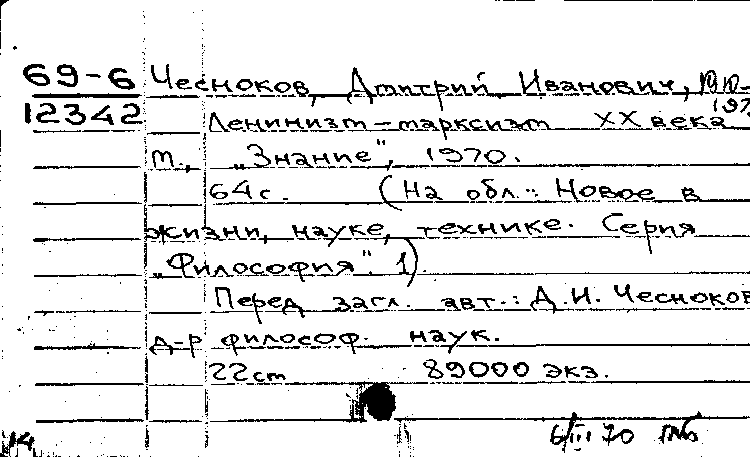 69-6 Чесноков, Дмитрий Иванович, 1910-197
12342 Ленинизм – марксизм XX века
М., „Знание", 1970.
64 с. (На обл.: Новое в
жизни, науке, технике. Серия
„Философия". 1).
Перед загл. авт.: Д.И. Чесноков
д-р философ. наук.
22 см 89000 экз.
6/III 70
14